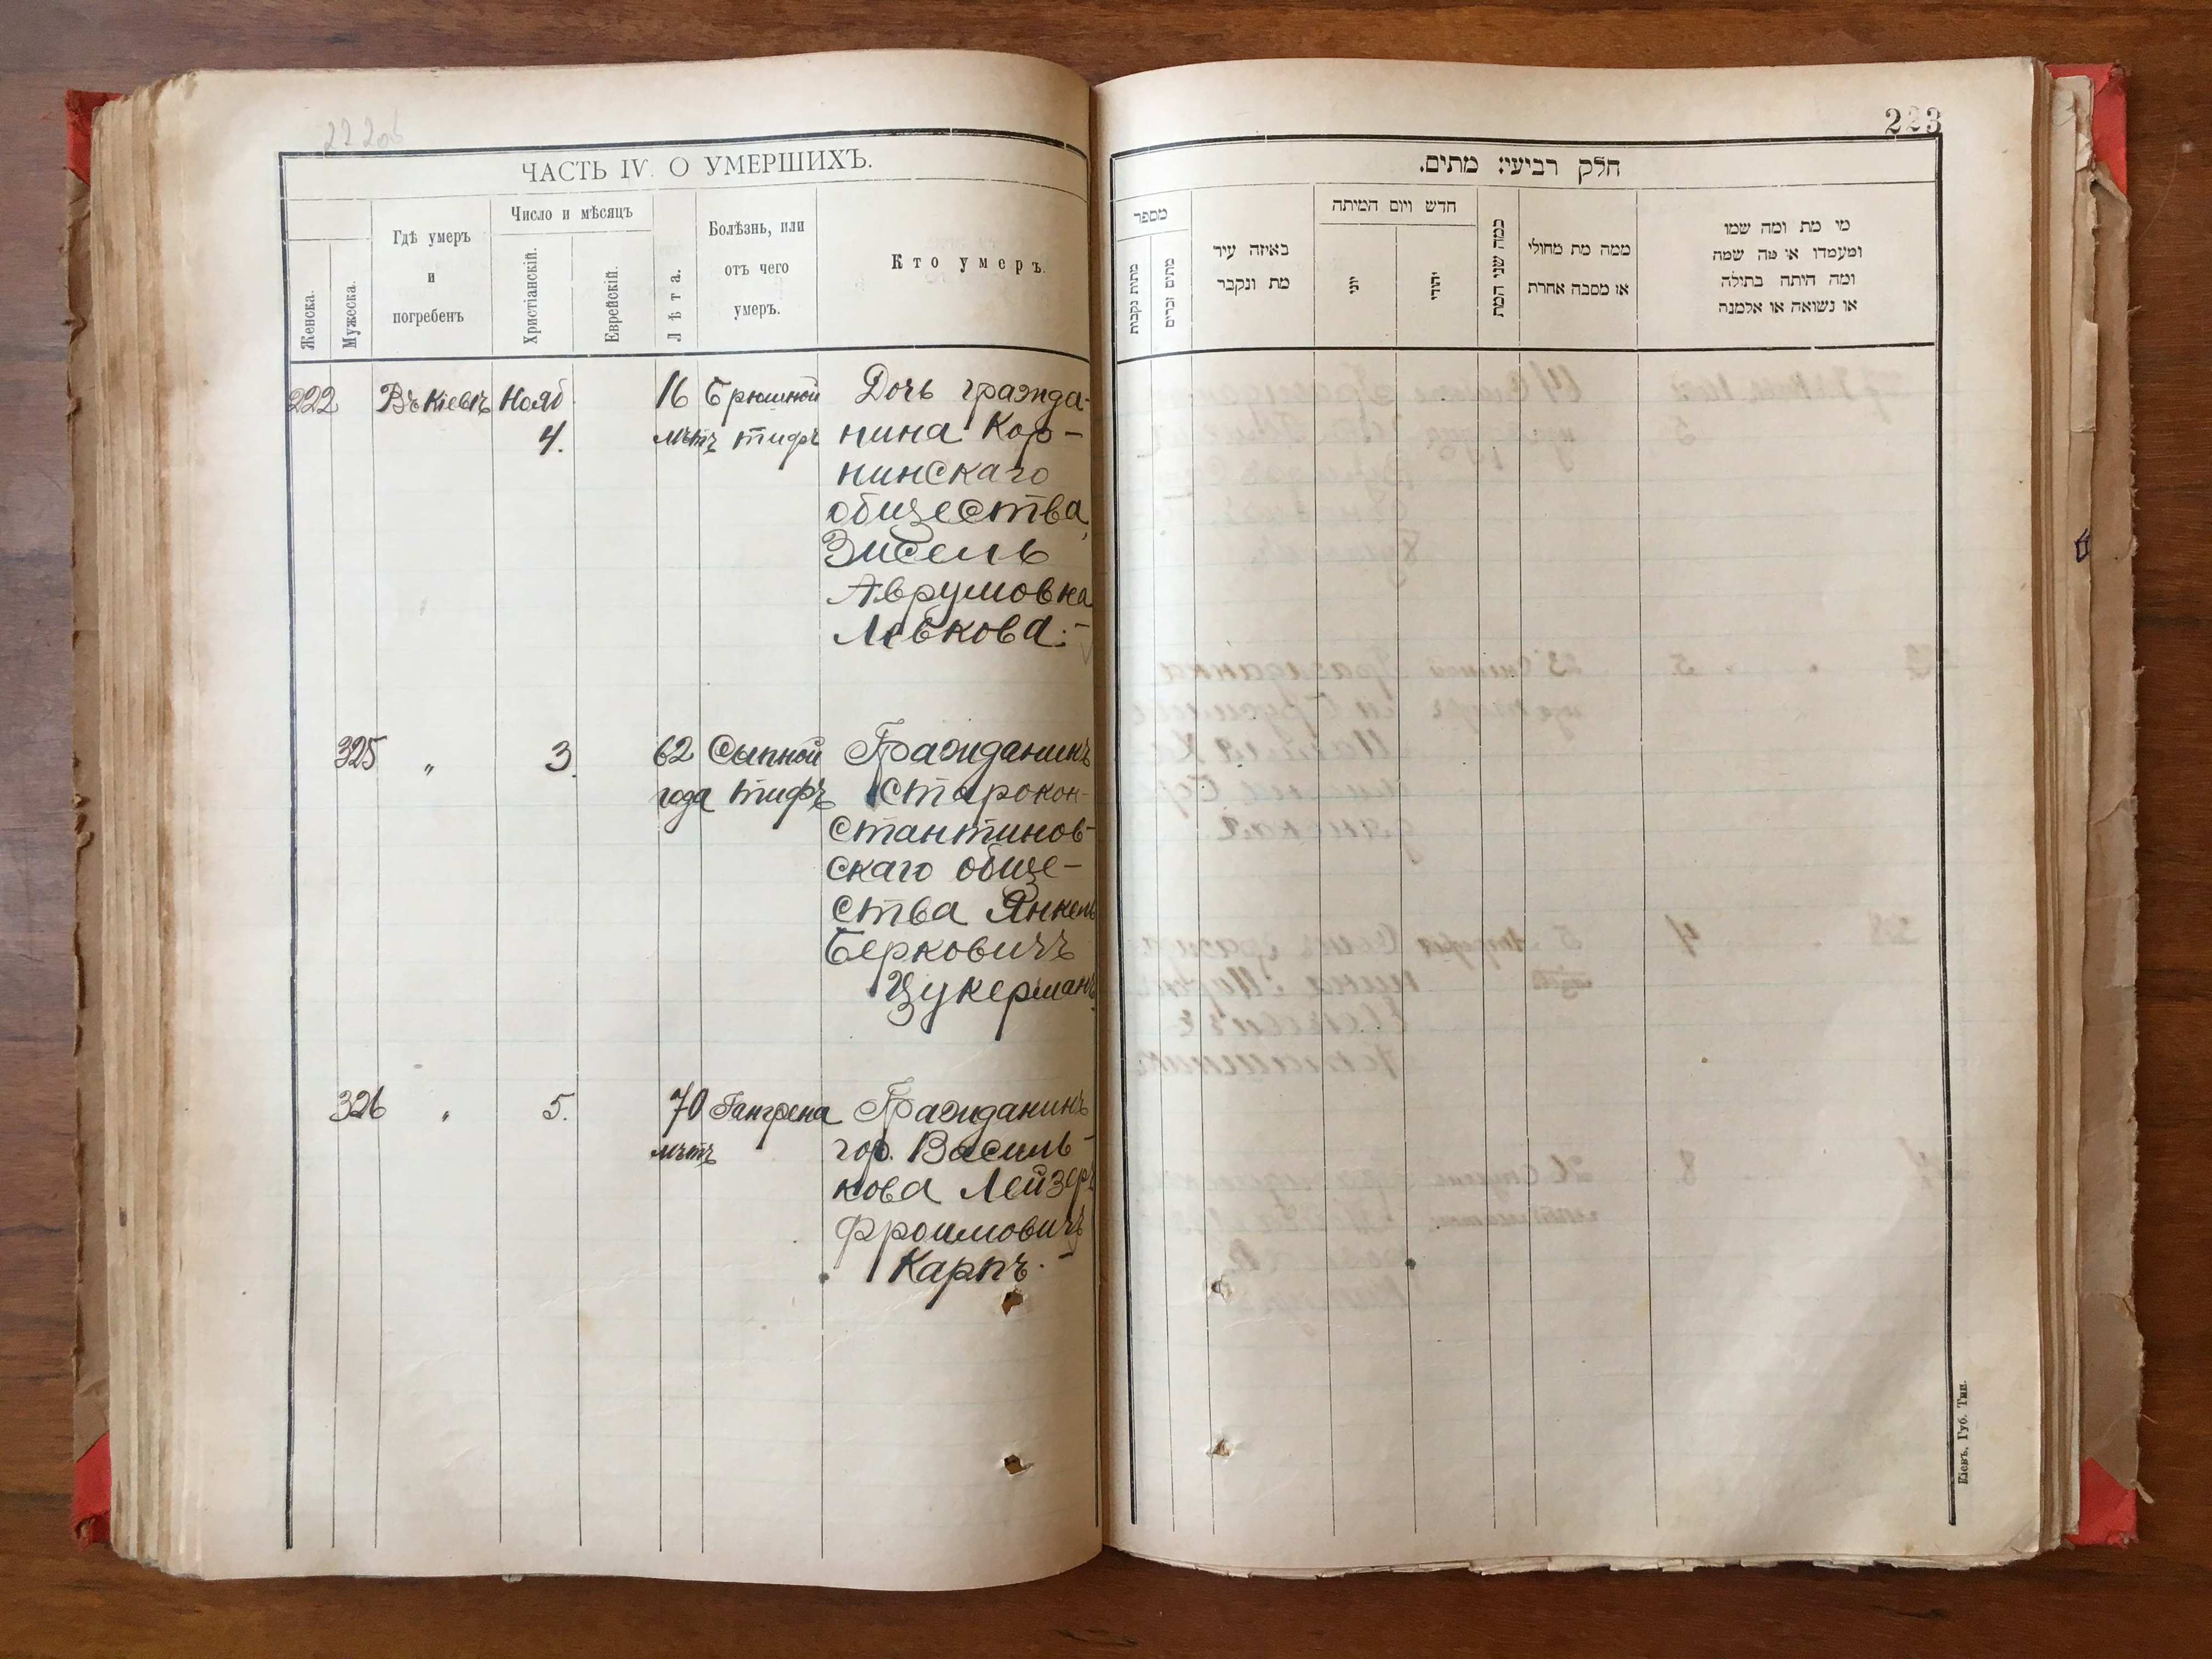 222об
ЧАСТЬ IV. О УМЕРШИХЪ.
Женска.
Мужеска.
Гдѣ умеръ
и
погребенъ
Число и мѣсяцъ
Христіанскій.
Еврейскій.
Лѣта.
Болѣзнь, или
отъ чего
умеръ.
Кто умеръ.
222 Въ Кіевѣ Нояб 16 Брюшной Дочь гражда-
4. лѣтъ тифъ нина Кор-
нинскаго
общества,
Зисель
Аврумовна
Левкова.-
325 " 3. 62 Сыпной Гражданинъ
года тифъ Старокон-
стантинов-
скаго обще-
ства Янкель
Берковичъ
Цукерманъ
326 " 5. 70 Гангрена Гражданинъ
лѣтъ гор. Василь-
кова Лейзеръ
Фроимовичъ
Карпъ.-
223
חלק רביעי: מתים.
מספר
מתות נקבות
מתים זכרים
באיזה עיר
מת ונקבר
חדש ויום המיתה
יוני
יהודי
כמה שני המת
ממה מת מחולי
או מסבה אחרת
מי מת ומה שמו
ומעמדו או מה שמה
ומה היתה בתולה
או נשואה או אלמנה
Кіевъ, Губ. Тип.